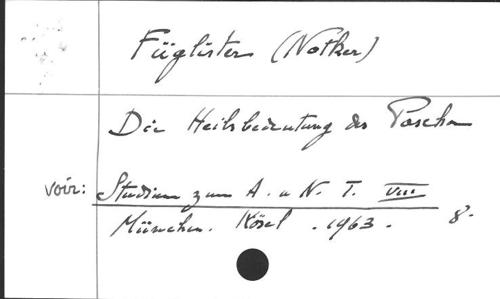 Füglister (Notker)
Die Heilsbedeutung des Pascha
voir: Studium zum A. u N. T. VIII
München. Kösel . 1963 . 8.